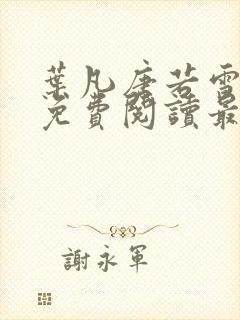 葉凡唐若雪
免費閱讀最
謝永軍